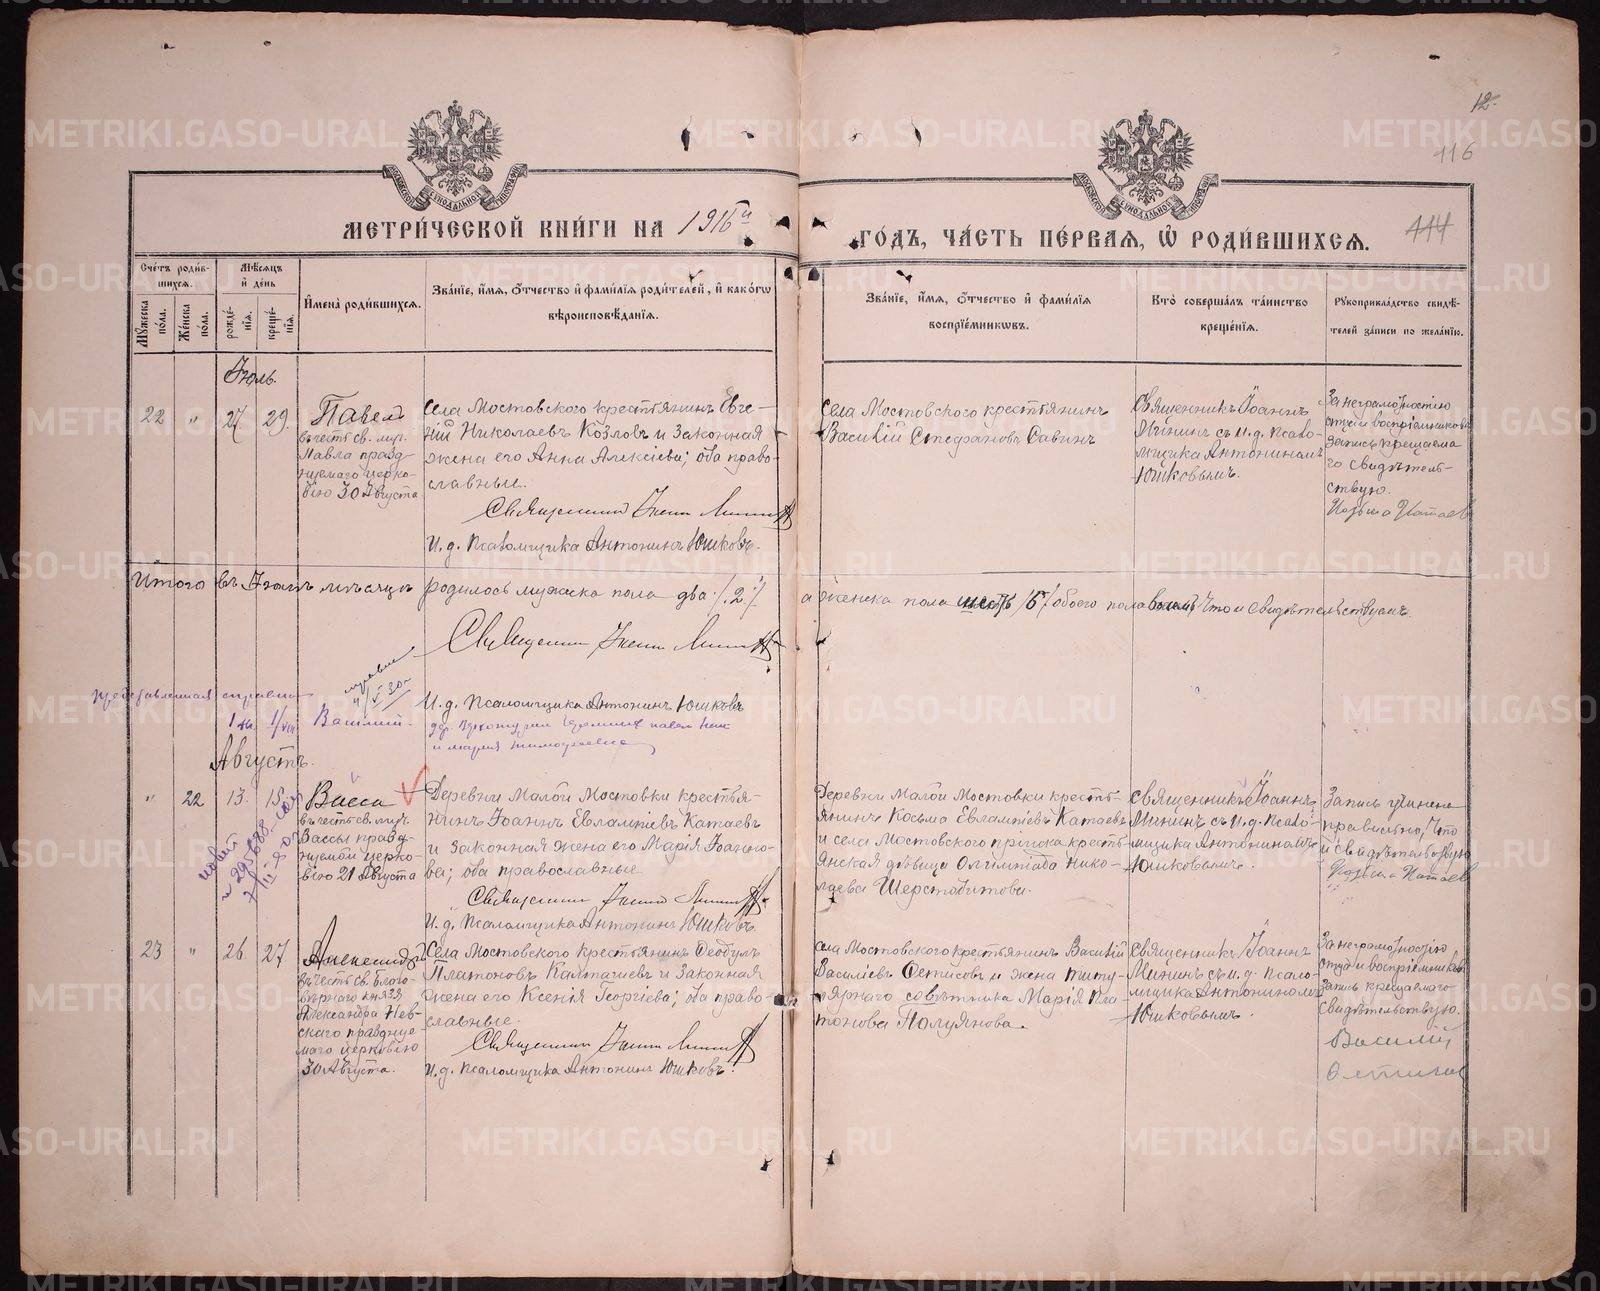 12.
116
МЕТРИ́ЧЕСКОЙ КНИ́ГИ НА 1916й ГО́ДЪ, ЧА́СТЬ ПЕ́РВАѦ, Ѡ҆ РОДИ́ВШИХСѦ.
114
Сче́тъ роди́вшихсѧ.
Мꙋ́жеска по́ла.
Же́нска по́ла.
Мѣ́сѧцъ и҆ де́нь
рожде́нїѧ.
креще́нїѧ.
И҆мена̀ роди́вшихсѧ.
Зва́нїе, и҆́мѧ, ѻ҆́тчество и҆ фами́лїѧ роди́телей, и҆ како́гѡ
вѣроисповѣ́данїѧ.
Зва́нїе, и҆́мѧ, ѻ҆́тчество и҆ фами́лїѧ
воспрїе́мникѡвъ.
Кто̀ соверша́лъ та́инство
креще́нїѧ.
Рꙋкоприкла́дство свидѣ́-
телей за́писи по жела́нїю.
Іюль.
22 " 27 29.
Павелъ
въ честь св. муч.
Павла празд-
нуемаго церко-
вію 30 Августа
Села Мостовского крестьянинъ Евге-
ній Николаевъ Козловъ и законная
жена его Анна Алексіева; оба право-
славные.
Священникъ Іоаннъ Мининъ
И. д. Псаломщика Антонинъ Юшковъ.
Села Мостовского крестьянинъ
Василій Стефановъ Савинъ
Священникъ Іоаннъ
Мининъ съ И. д. Псало-
мщика Антониномъ
Юшковымъ.
За неграмотностію
отца и воспріемниковъ
запись крещаема
го свидѣтель-
ствую.
Козьма Катаевъ
Итого въ Іюлѣ мѣсяцѣ родилось мужска пола два /2/ а женска пола шесть /6/ обоего пола восемь Что и свидѣтельствуемъ.
Священникъ Іоаннъ Мининъ
И. д. Псаломщика Антонинъ Юшковъ
Василий
и мария тимофеевна
Августъ.
" 22 13. 15.
Васса
въ честь св. муч.
Вассы празд-
нуемой церко-
вію 21 Августа
Деревни Малой Мостовки крестья-
нинъ Іоаннъ Евлампіевъ Катаевъ
и законная жена его Марія Іоанно-
ва; оба православные
Священникъ Іоаннъ Мининъ
И. д. Псаломщика Антонинъ Юшковъ.
Деревни Малой Мостовки кресть-
янинъ Косьма Евлампіевъ Катаевъ
и села Мостовского кресть-
янская дѣвица Олимпіада Нико-
лаева Шерстобитова.
Священникъ Іоаннъ
Мининъ съ И. д. Псало-
мщика Антониномъ
Юшковымъ.
Запись учинена
правильно, что
и свидѣтельствую
Козьма Катаевъ
23 " 26. 27
Александръ
въ честь св. Благо-
вѣрнаго князя
Александра Нев-
скаго празднуе-
маго церковію
30 Августа.
Села Мостовского крестьянинъ Ѳеодулъ
Платоновъ и законная
жена его Ксенія Георгіева; оба право-
славные.
Священникъ Іоаннъ Мининъ
И. д. псаломщика Антонинъ Юшковъ.
Села Мостовского крестьянинъ Василій
Василіевъ и жена титу-
лярнаго совѣтника Марія Пла-
тонова Полуянова.
Священникъ Іоаннъ
Мининъ съ и. д. псало-
мщика Антониномъ
Юшковымъ.
За неграмотностію
отца и воспріемниковъ
запись крещаемаго
свидѣтельствую.
Василій